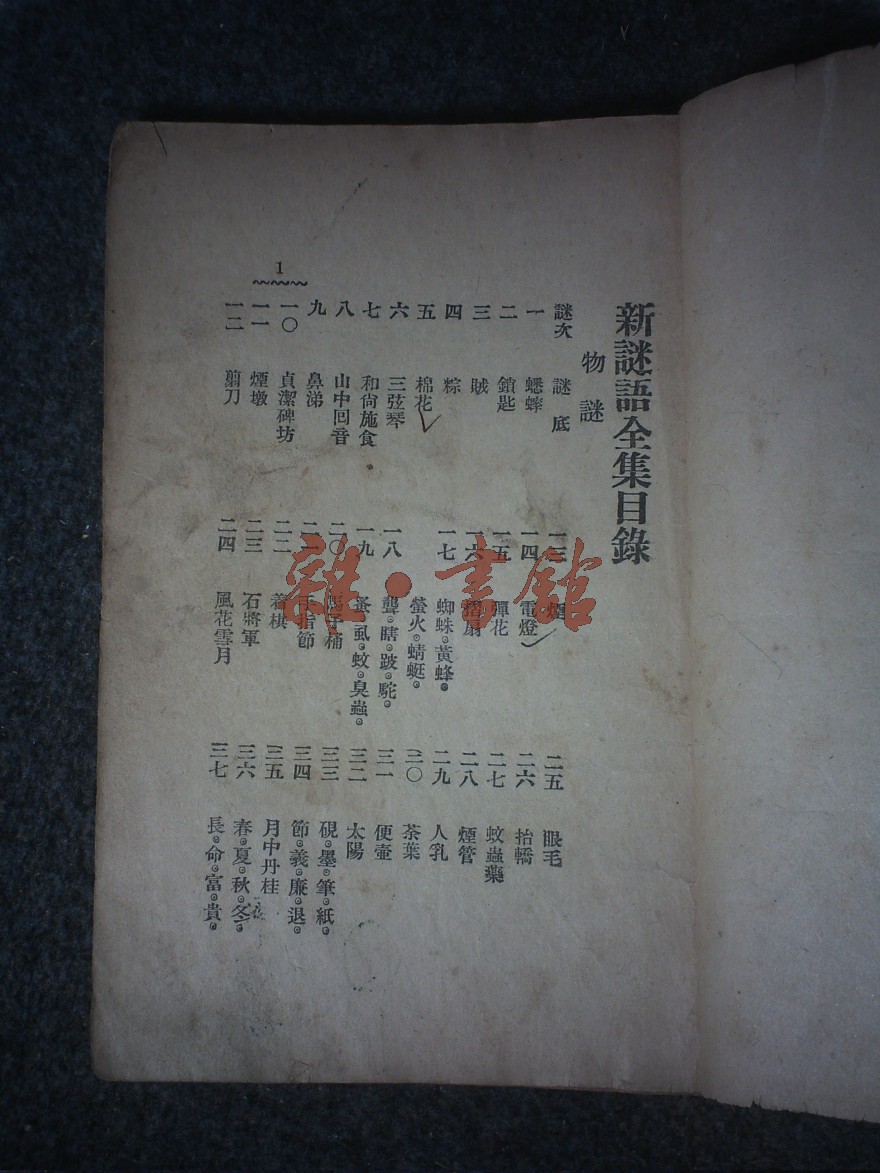 新謎語全集目錄
物謎
謎次 謎底
一 蟋蟀
二 鎖匙
三 賊
四 粽
五 棉花
六 三弦琴
七 和尙施食
八 山中回音
九 鼻涕
一〇 貞潔碑坊
一一 煙墩
一二 翦刀
一三 煙
一四 電燈
一五 彈花
一六 摺扇
一七 蜘蛛。黃蜂。
螢火。蜻蜓。
一八 聾。瞎。跛。駝。
一九 蚤。虱。蚊。臭蟲。
二〇 馬子桶
二一 手指節
二二 着棋
二三 石將軍
二四 風花雪月
二五 眼毛
二六 抬轎
二七 蚊蟲藥
二八 煙管
二九 人乳
三〇 茶葉
三一 便壺
三二 太陽
三三 硯。墨。筆。紙。
三四 節。義。廉。退。
三五 月中丹桂
三六 春。夏。秋。冬。
三七 長。命。富。貴。
1
雜·書館